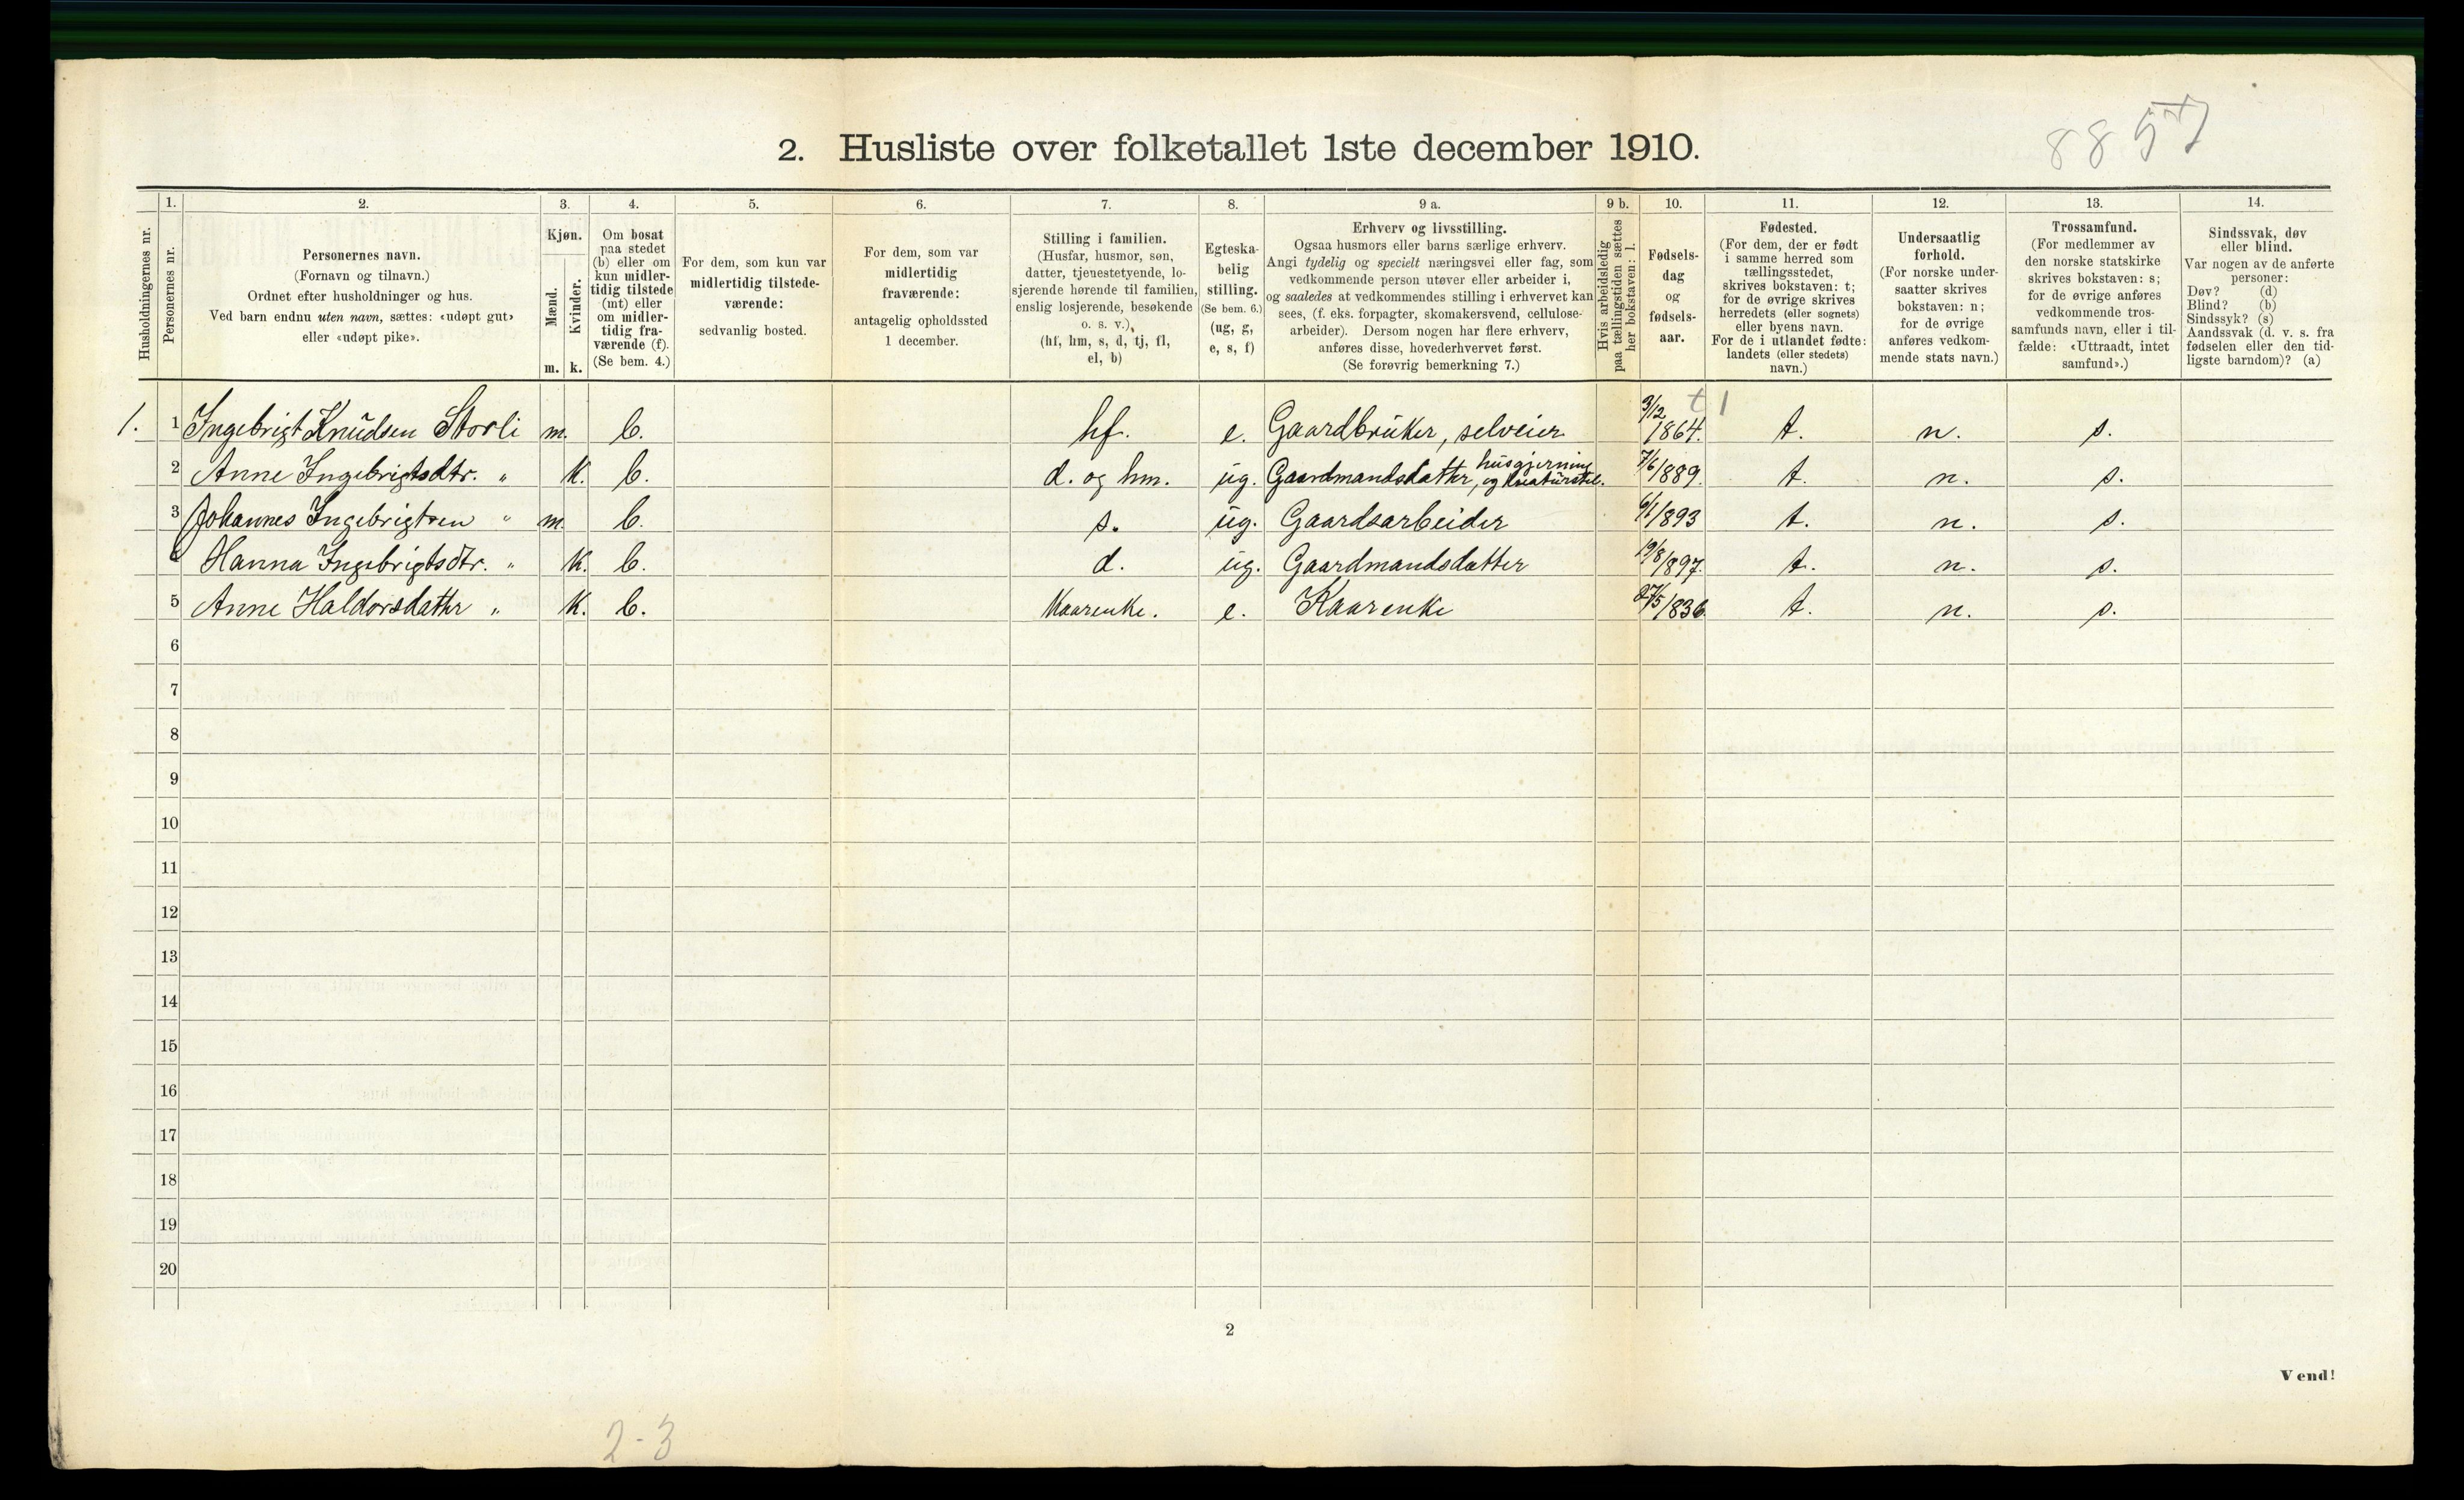 8857
2. Husliste over folketallet 1ste december 1910.
Husholdningernes nr.
1.
Personernes nr.
2.
Personernes navn.
(Fornavn og tilnavn.)
Ordnet efter husholdninger og hus.
Ved barn endnu uten navn, sættes: «udøpt gut»
eller «udøpt pike».
3.
Kjøn.
Mænd.
Kvinder.
m. k.
4.
Om bosat
paa stedet
(b) eller om
kun midler-
tidig tilstede
(mt) eller
om midler-
tidig fra-
værende (f).
(Se bem. 4.)
5.
For dem, som kun var
midlertidig tilstede-
værende:
sedvanlig bosted.
6.
For dem, som var
midlertidig
fraværende:
antagelig opholdssted
1 december.
7.
Stilling i familien.
(Husfar, husmor, søn,
datter, tjenestetyende, lo-
sjerende hørende til familien,
enslig losjerende, besøkende
o. s. v.)
(hf, hm, s, d, tj, fl,
el, b)
8.
Egteska-
belig
stilling.
(Se bem. 6.)
(ug, g,
e, s, f)
9 a.
Erhverv og livsstilling.
Ogsaa husmors eller barns særlige erhverv.
Angi tydelig og specielt næringsvei eller fag, som
vedkommende person utøver eller arbeider i,
og saaledes at vedkommendes stilling i erhvervet kan
sees, (f. eks. forpagter, skomakersvend, cellulose-
arbeider). Dersom nogen har flere erhverv,
anføres disse, hovederhvervet først.
(Se forøvrig bemerkning 7.)
9 b.
Hvis arbeidsledig
paa tællingstiden sættes
her bokstaven: l.
10.
Fødsels-
dag
og
fødsels-
aar.
11.
Fødested.
(For dem, der er født
i samme herred som
tællingsstedet,
skrives bokstaven: t;
for de øvrige skrives
herredets (eller sognets)
eller byens navn.
For de i utlandet fødte:
landets (eller stedets)
navn.)
12.
Undersaatlig
forhold.
(For norske under-
saatter skrives
bokstaven: n;
for de øvrige
anføres vedkom-
mende stats navn.)
13.
Trossamfund.
(For medlemmer av
den norske statskirke
skrives bokstaven: s;
for de øvrige anføres
vedkommende tros-
samfunds navn, eller i til-
fælde: «Uttraadt, intet
samfund».)
14.
Sindssvak, døv
eller blind.
Var nogen av de anførte
personer:
Døv? (d)
Blind? (b)
Sindssyk? (s)
Aandssvak (d. v. s. fra
fødselen eller den tid-
ligste barndom)? (a)
t 1
1. 1 Ingebrigt Knudsen Storli m. b. hf. e. Gaardbruker, selveier 3/12 1864. t. n. s.
2 Anne Ingebrigtsdtr. " k. b. d. og hm. ug. Gaardmandsdatter, husgjerning og kreaturstel. 7/6 1889. t. n. s.
3 Johannes Ingebrigtsen " m. b. s. ug. Gaardsarbeider 6/1 1893 t. n. s.
4 Hanna Ingebrigtsdtr. " k. b. d. ug. Gaardmandsdatter 19/8 1897. t. n. s.
5 Anne Haldorsdatter " k. b. Kaarenke. e. Kaarenke 27/5 1836. t. n. s.
6
7
8
9
10
11
12
13
14
15
16
17
18
19
20
2
Vend!
2-3